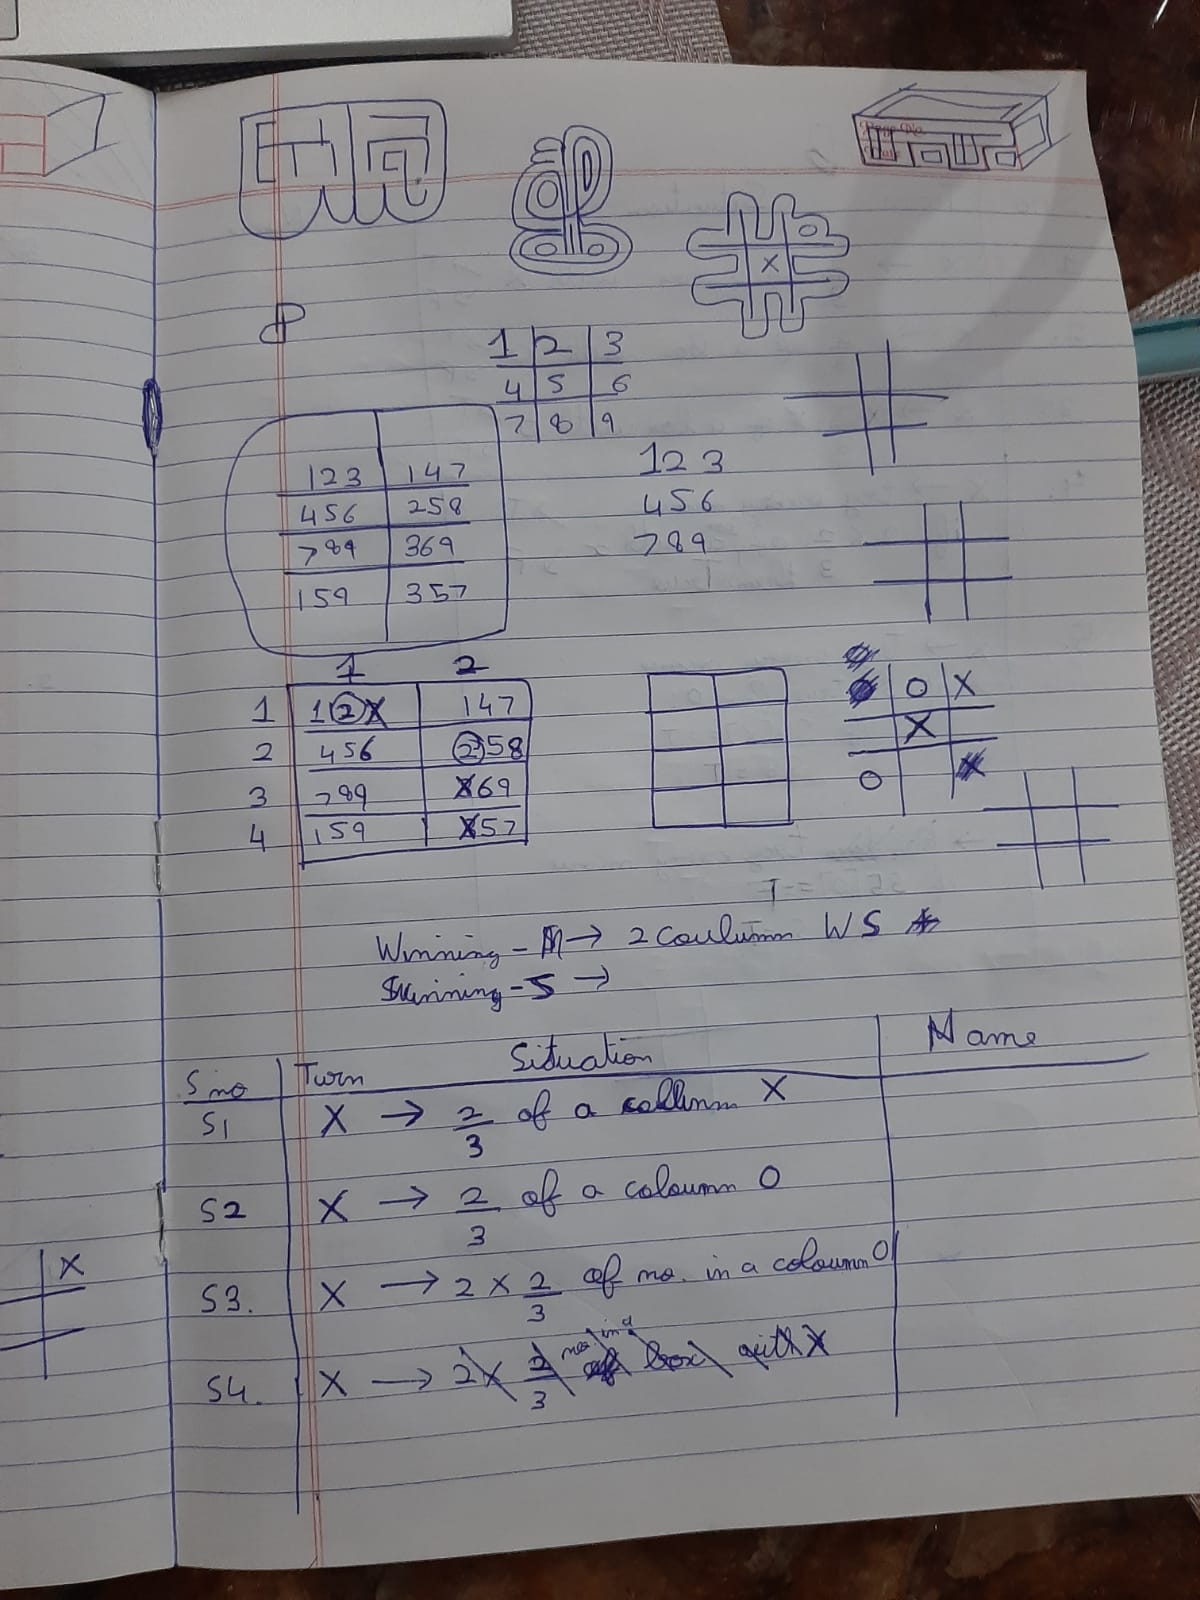 Page No.
X
1 2 3
4 5 6
7 8 9
123 147
456 258
789 369
159 357
1 2 3
4 5 6
7 8 9
1 2
1 12X 147
2 456 258
3 789 X69
4 159 X57
O X
X
O
= T
Winning - M → 2 Coulumn WS
Swinning - S →
S no Turn Situation Name
S1 X → 2/3 of a collumn X
S2 X → 2/3 of a coloumn O
S3. X → 2 x 2/3 of no. in a coloumn O
S4. X → 2 x 2/3 no. in a box with X
X